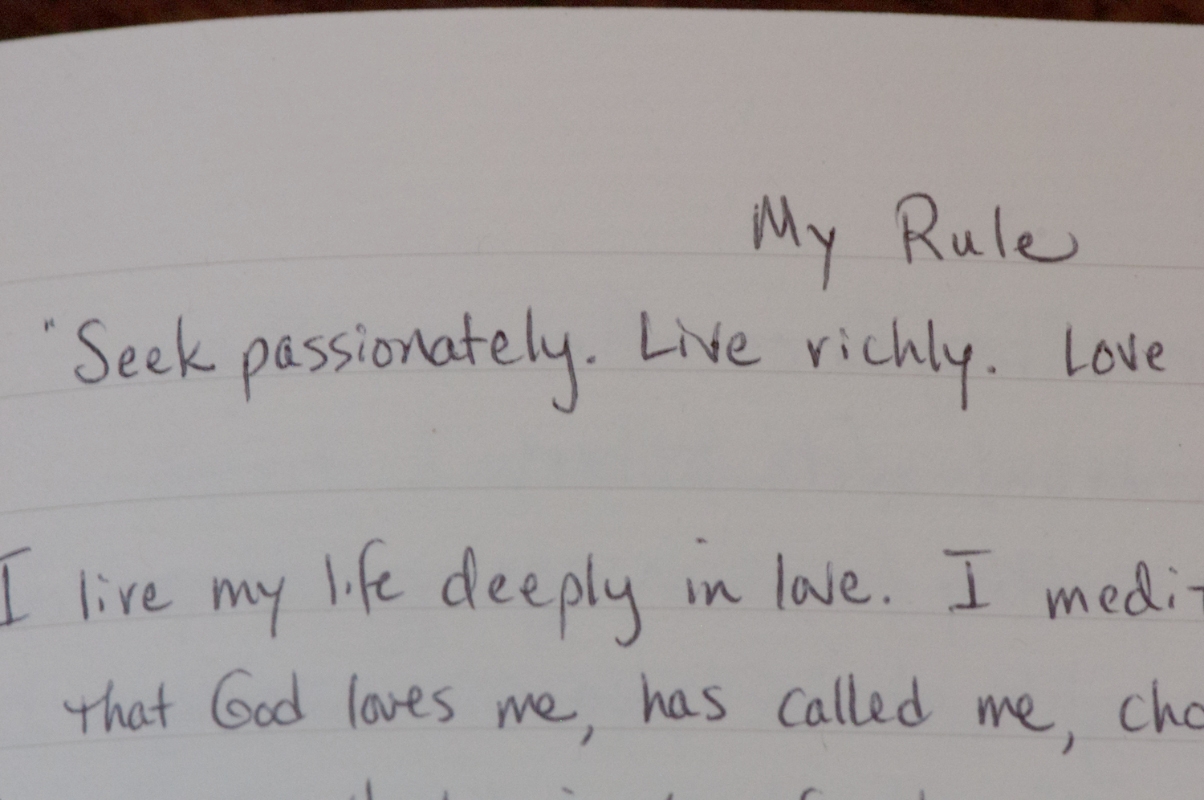 My Rule
"Seek passionately. Live richly. Love
I live my life deeply in love. I medit
that God loves me, has called me, cho